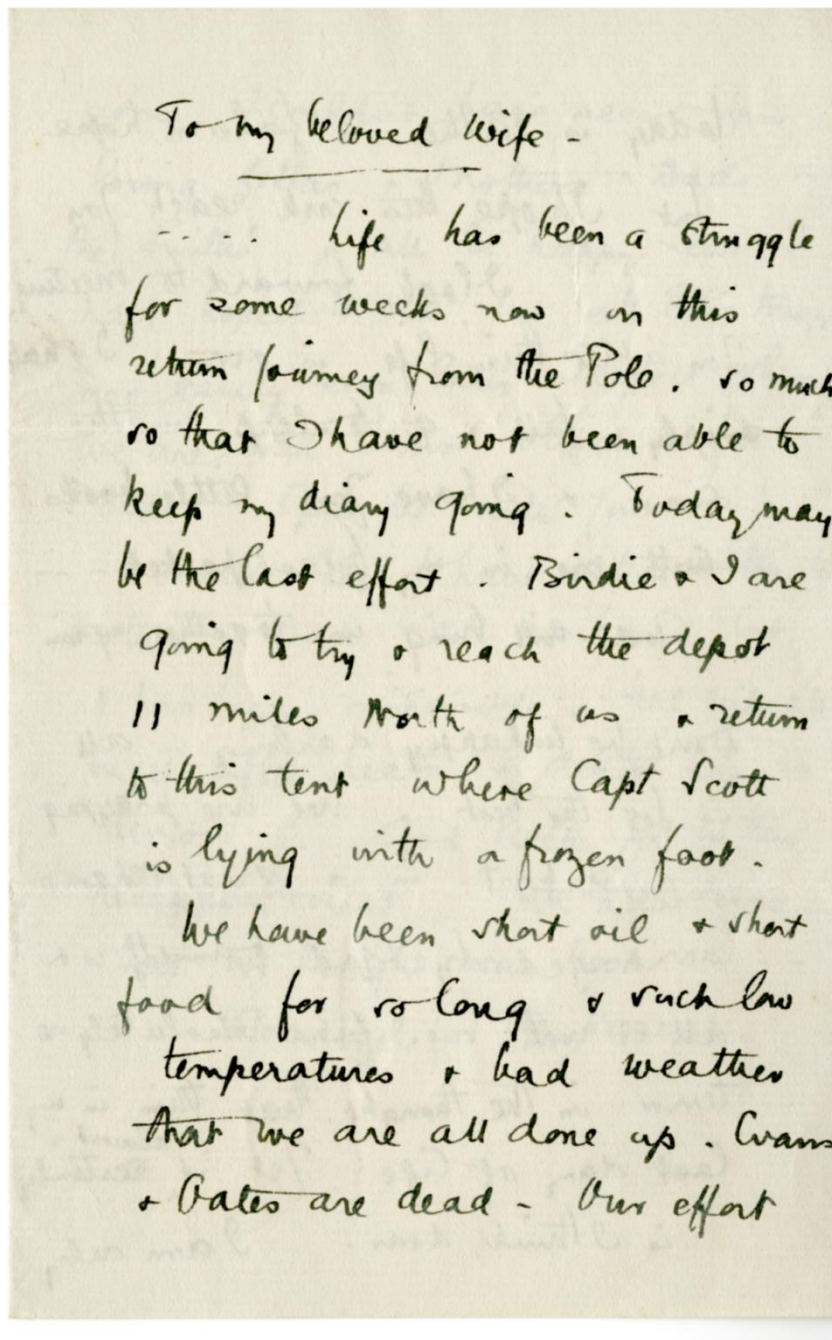 To my beloved Wife -
----. Life has been a struggle
for some weeks now on this
return journey from the Pole. so much
so that I have not been able to
keep my diary going. Today may
be the last effort. Birdie & I are
going to try & reach the depot
11 miles North of us & return
to this tent where Capt Scott
is lying with a frozen foot.
We have been short oil & short
food for so long & such low
temperatures & bad weather
that we are all done up. Evans
& Oates are dead - Our effort